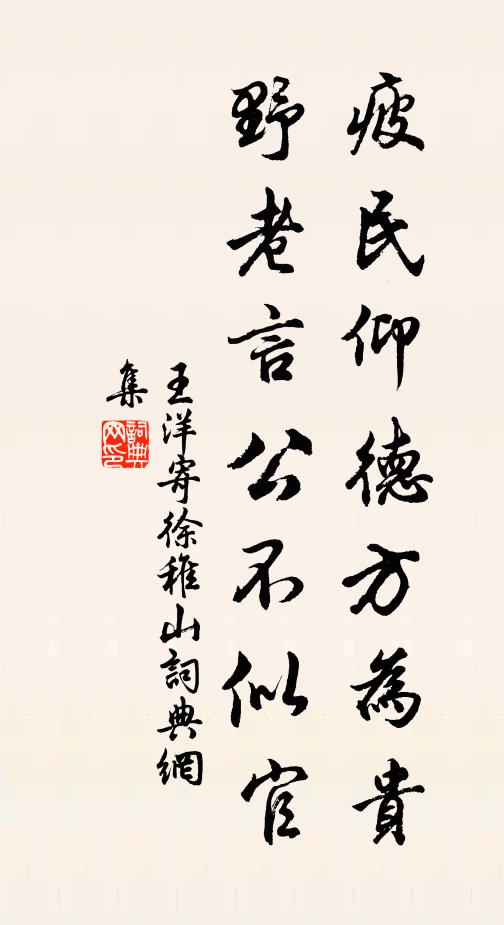 疲民仰德方為貴
野老言公不似官
王洋寄徐稚山詞典網
集
詞典
网印